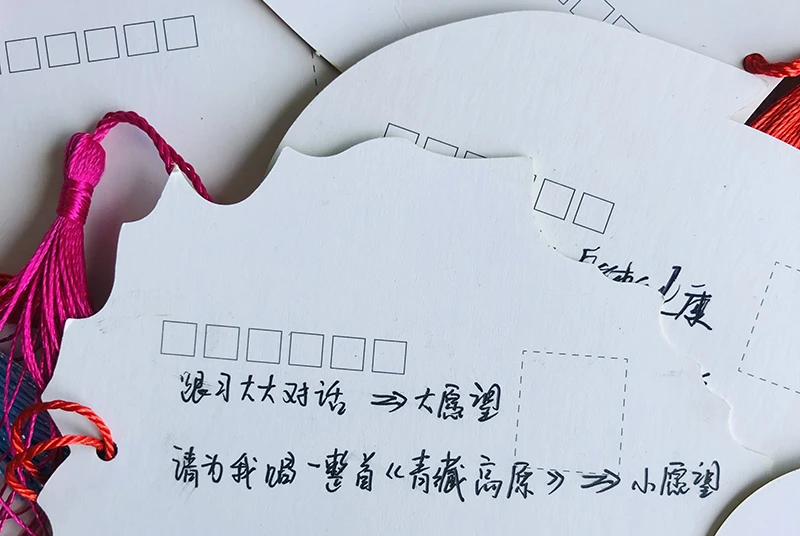 康
跟习大大对话 => 大愿望
请为我唱一整首《青藏高原》 => 小愿望